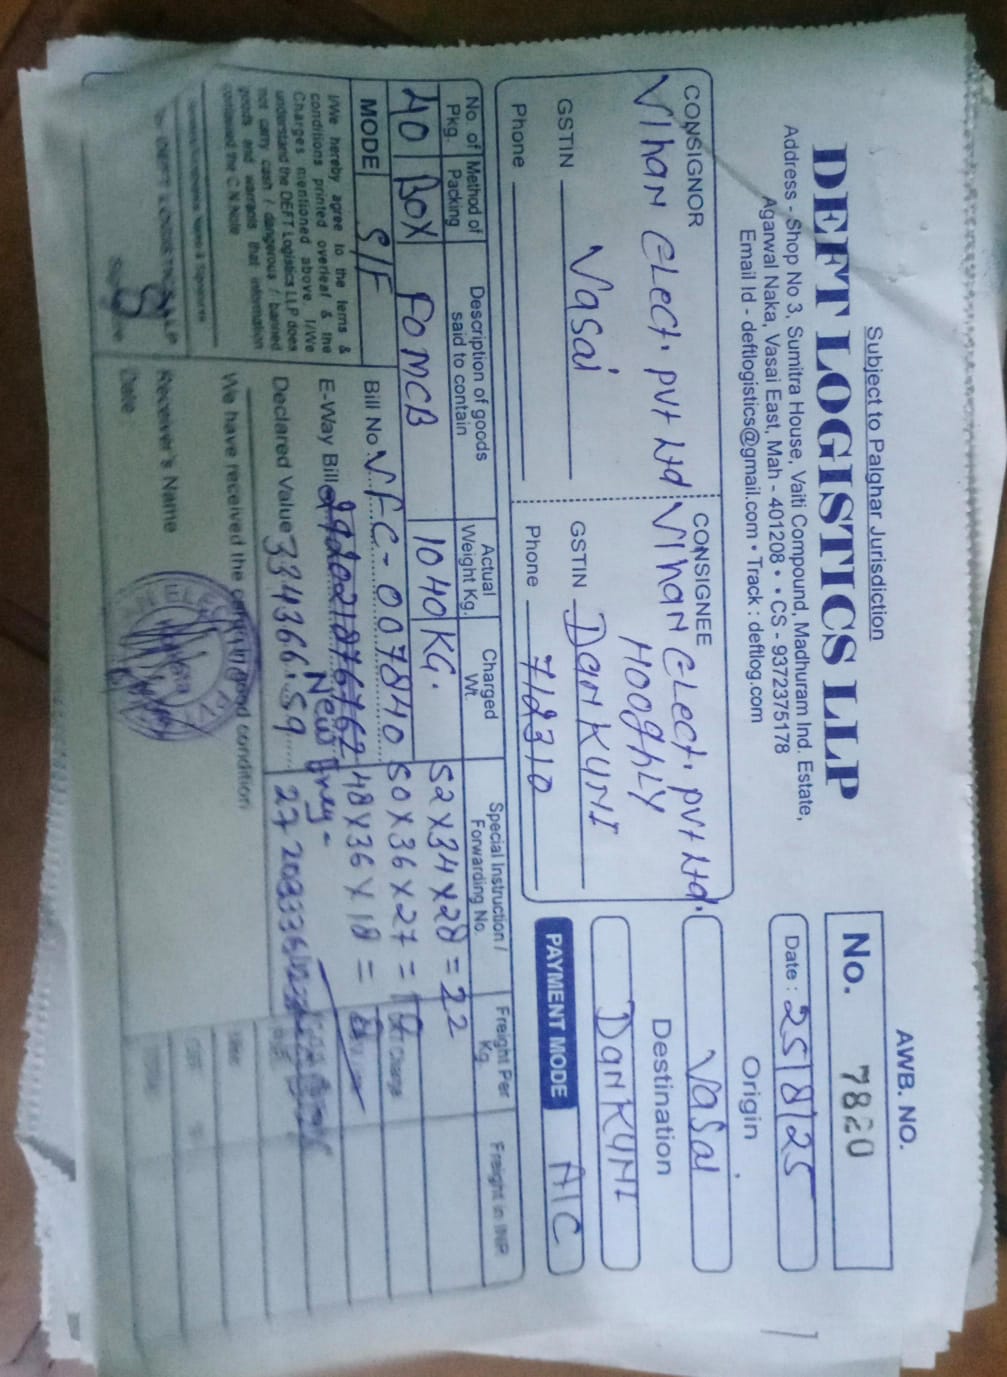 Subject to Palghar Jurisdiction
AWB. NO.
DEFT LOGISTICS LLP
No. 7820
Address - Shop No 3, Sumitra House, Vaiti Compound, Madhuram Ind. Estate,
Agarwal Naka, Vasai East, Mah - 401208 • • CS - 9372375178
Email Id - deftlogistics@gmail.com • Track : deftlog.com
Date : 25/8/25
CONSIGNOR
Vihan Elect. Pvt Ltd
Vasai
GSTIN
Phone
CONSIGNEE
Vihan Elect. Pvt Ltd.
HooghLY
GSTIN DanKUNI
Phone 712310
Origin
Vasai
Destination
DanKUNI
PAYMENT MODE A/C
No. of Pkg.
Method of Packing
Description of goods said to contain
Actual Weight Kg.
Charged Wt.
Special Instruction / Forwarding No.
Freight Per Kg.
Freight in INR
40 BOX FOMCB 1040 KG.
52 x 34 x 28 = 22
50 x 36 x 27 =
48 x 36 x 18 =
MODE S/F
Bill No VFC-007840
E-Way Bill
Declared Value 334366.59
New
I/We hereby agree to the terms &
conditions printed overleaf & the
Charges mentioned above. I/We
understand the DEFT Logistics LLP does
not carry cash / dangerous / banned
goods and warrants that information
contained the C.N.Note
We have received the in good condition
Receiver's Name
Date